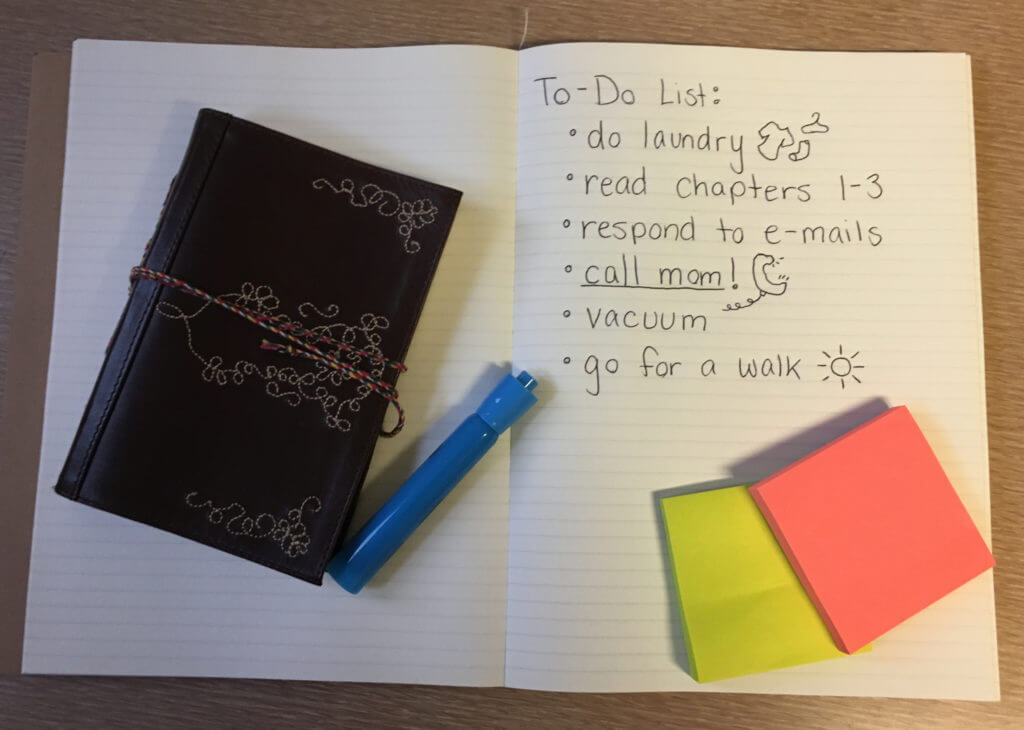 To-Do List:
• do laundry
• read chapters 1-3
• respond to e-mails
• call mom!
• vacuum
• go for a walk